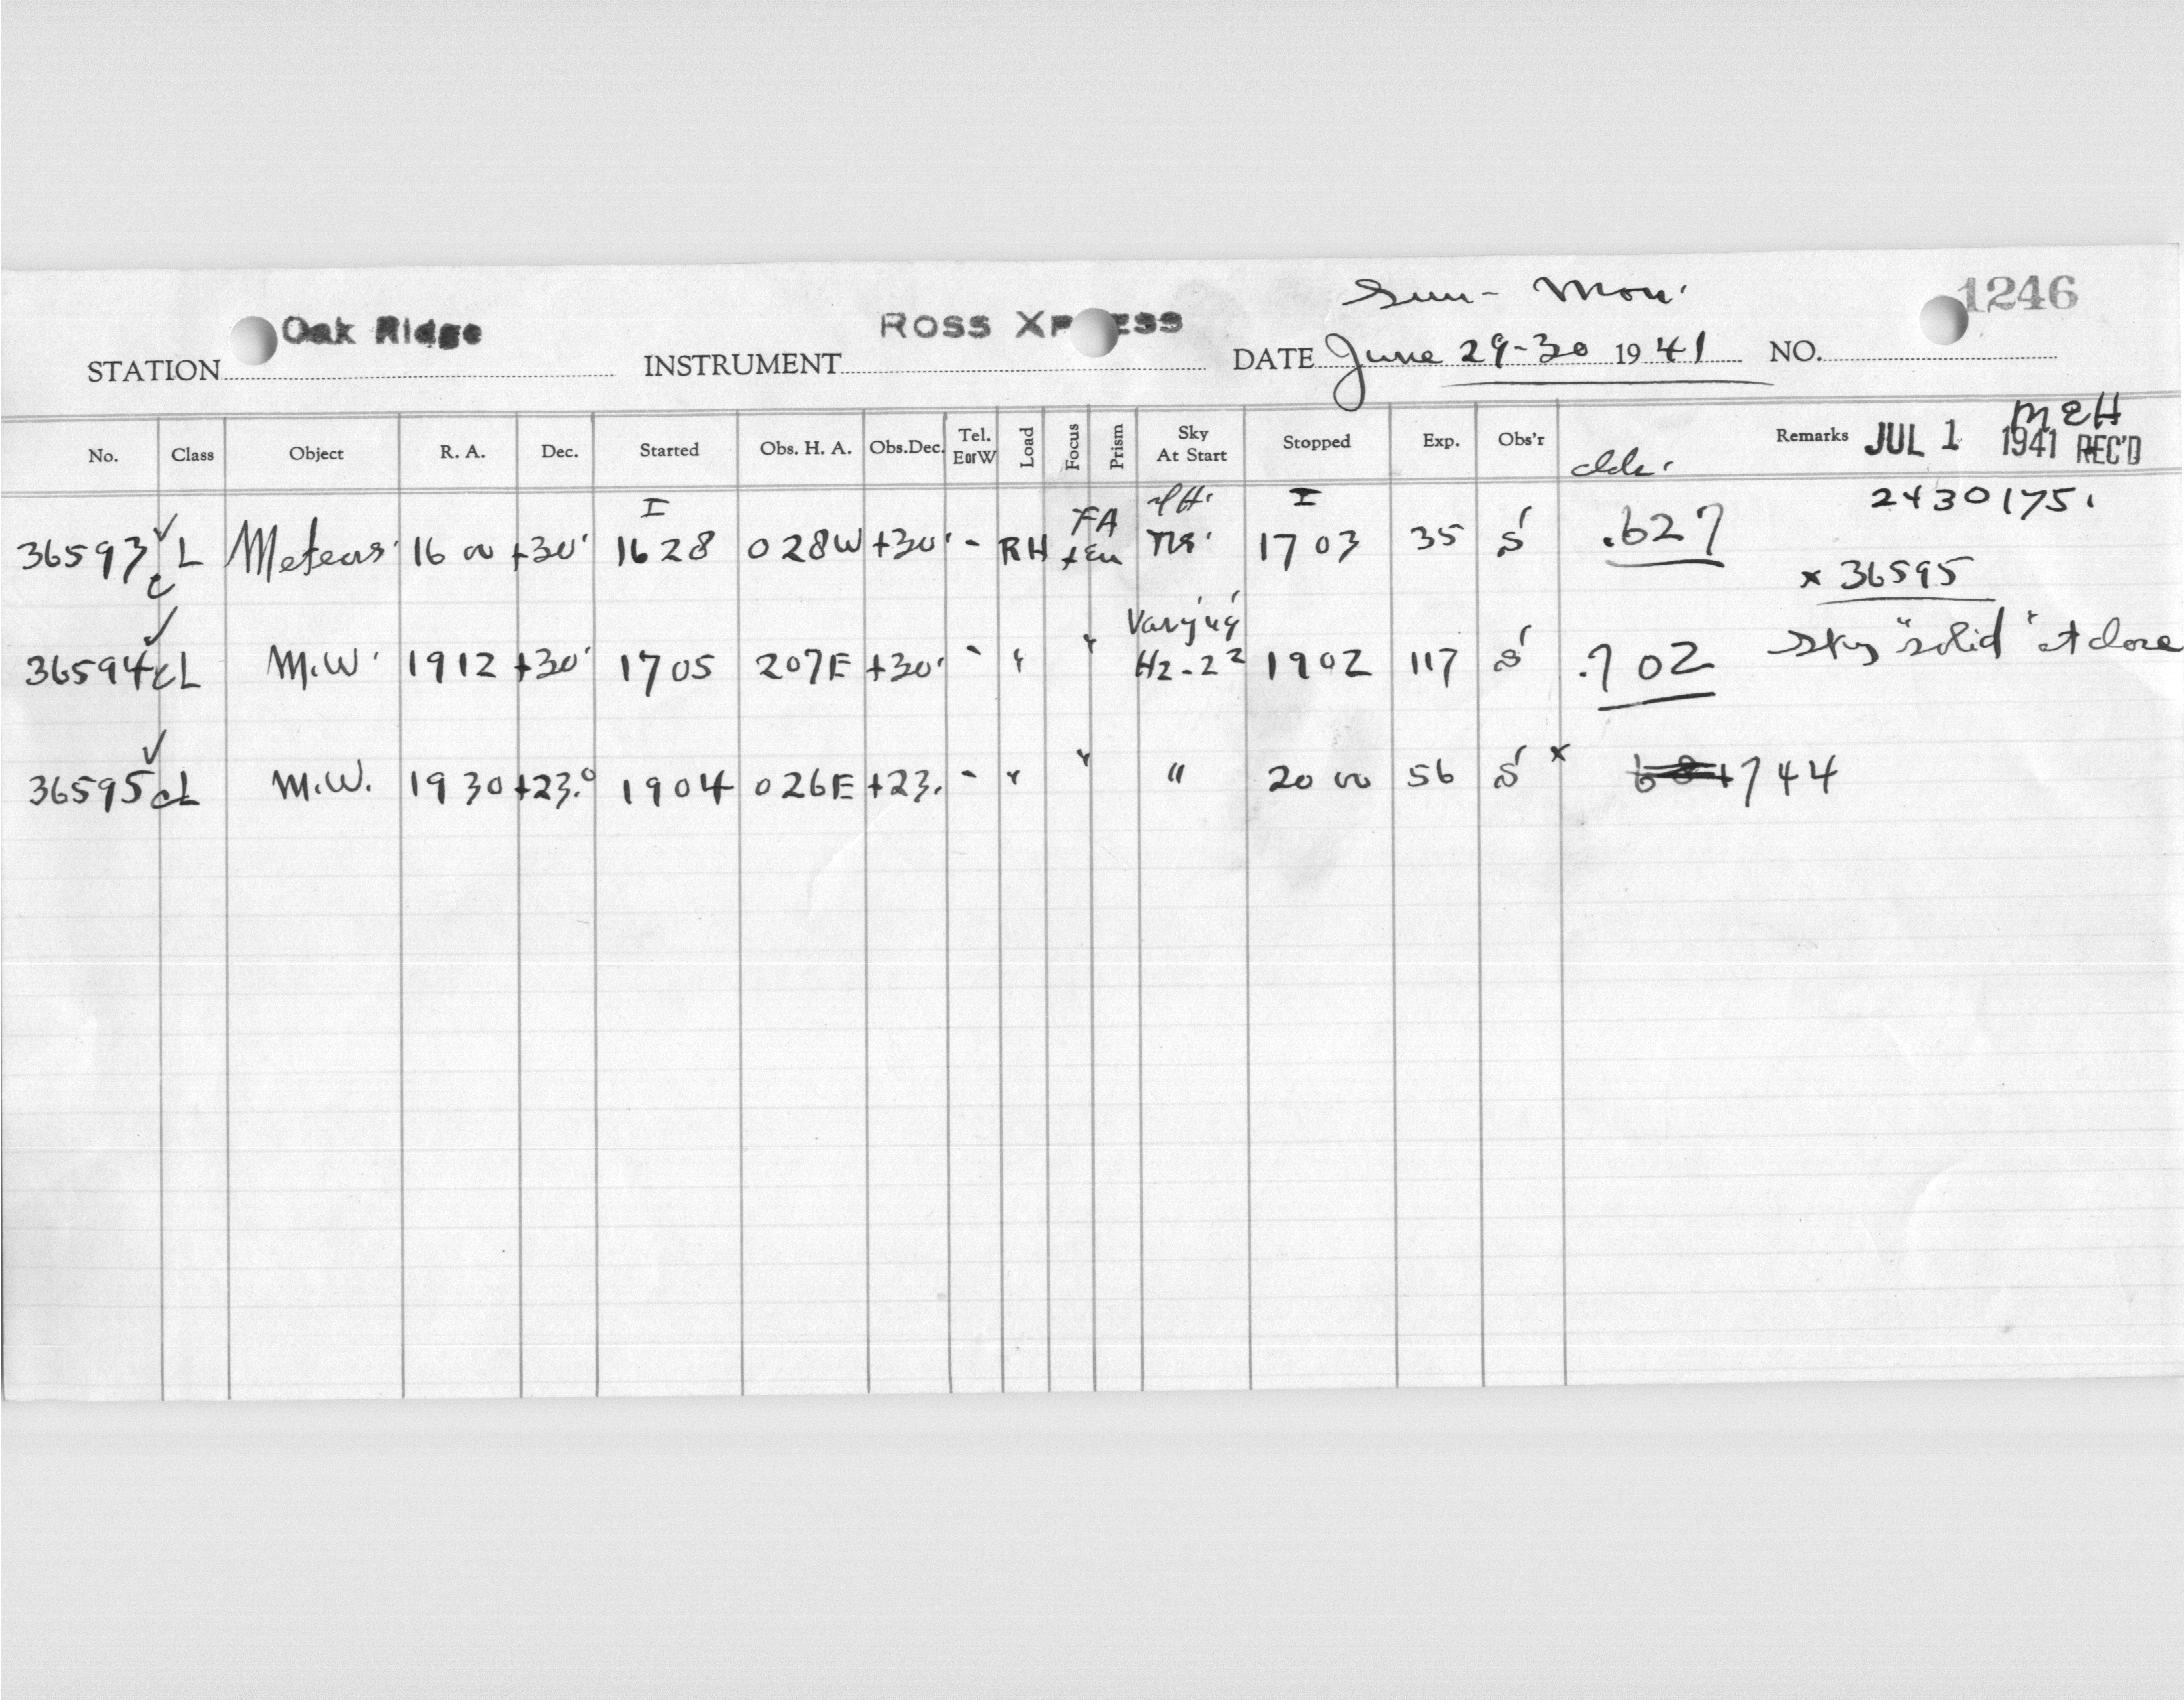 Sun - Mon.
1246
STATION Oak Ridge INSTRUMENT ROSS XPRESS DATE June 29-30 1941 NO.
No. Class Object R. A. Dec. Started Obs. H. A. Obs.Dec. Tel. EorW Load Focus Prism Sky At Start Stopped Exp. Obs'r Remarks JUL 1 1941 REC'D
MEH
2430175.
36593 cL Meteors 16 00 +30° I 16 28 0 28W +30° - RH FA I 17 03 35 S .627
x 36595
36594 cL M.W. 19 12 +30° 17 05 2 07E +30° - " " Varying Hz-2² 19 02 117 S .702 Sky "solid" at close
36595 cL M.W. 19 30 +23.° 19 04 0 26E +23. - " " " 20 00 56 S x 744